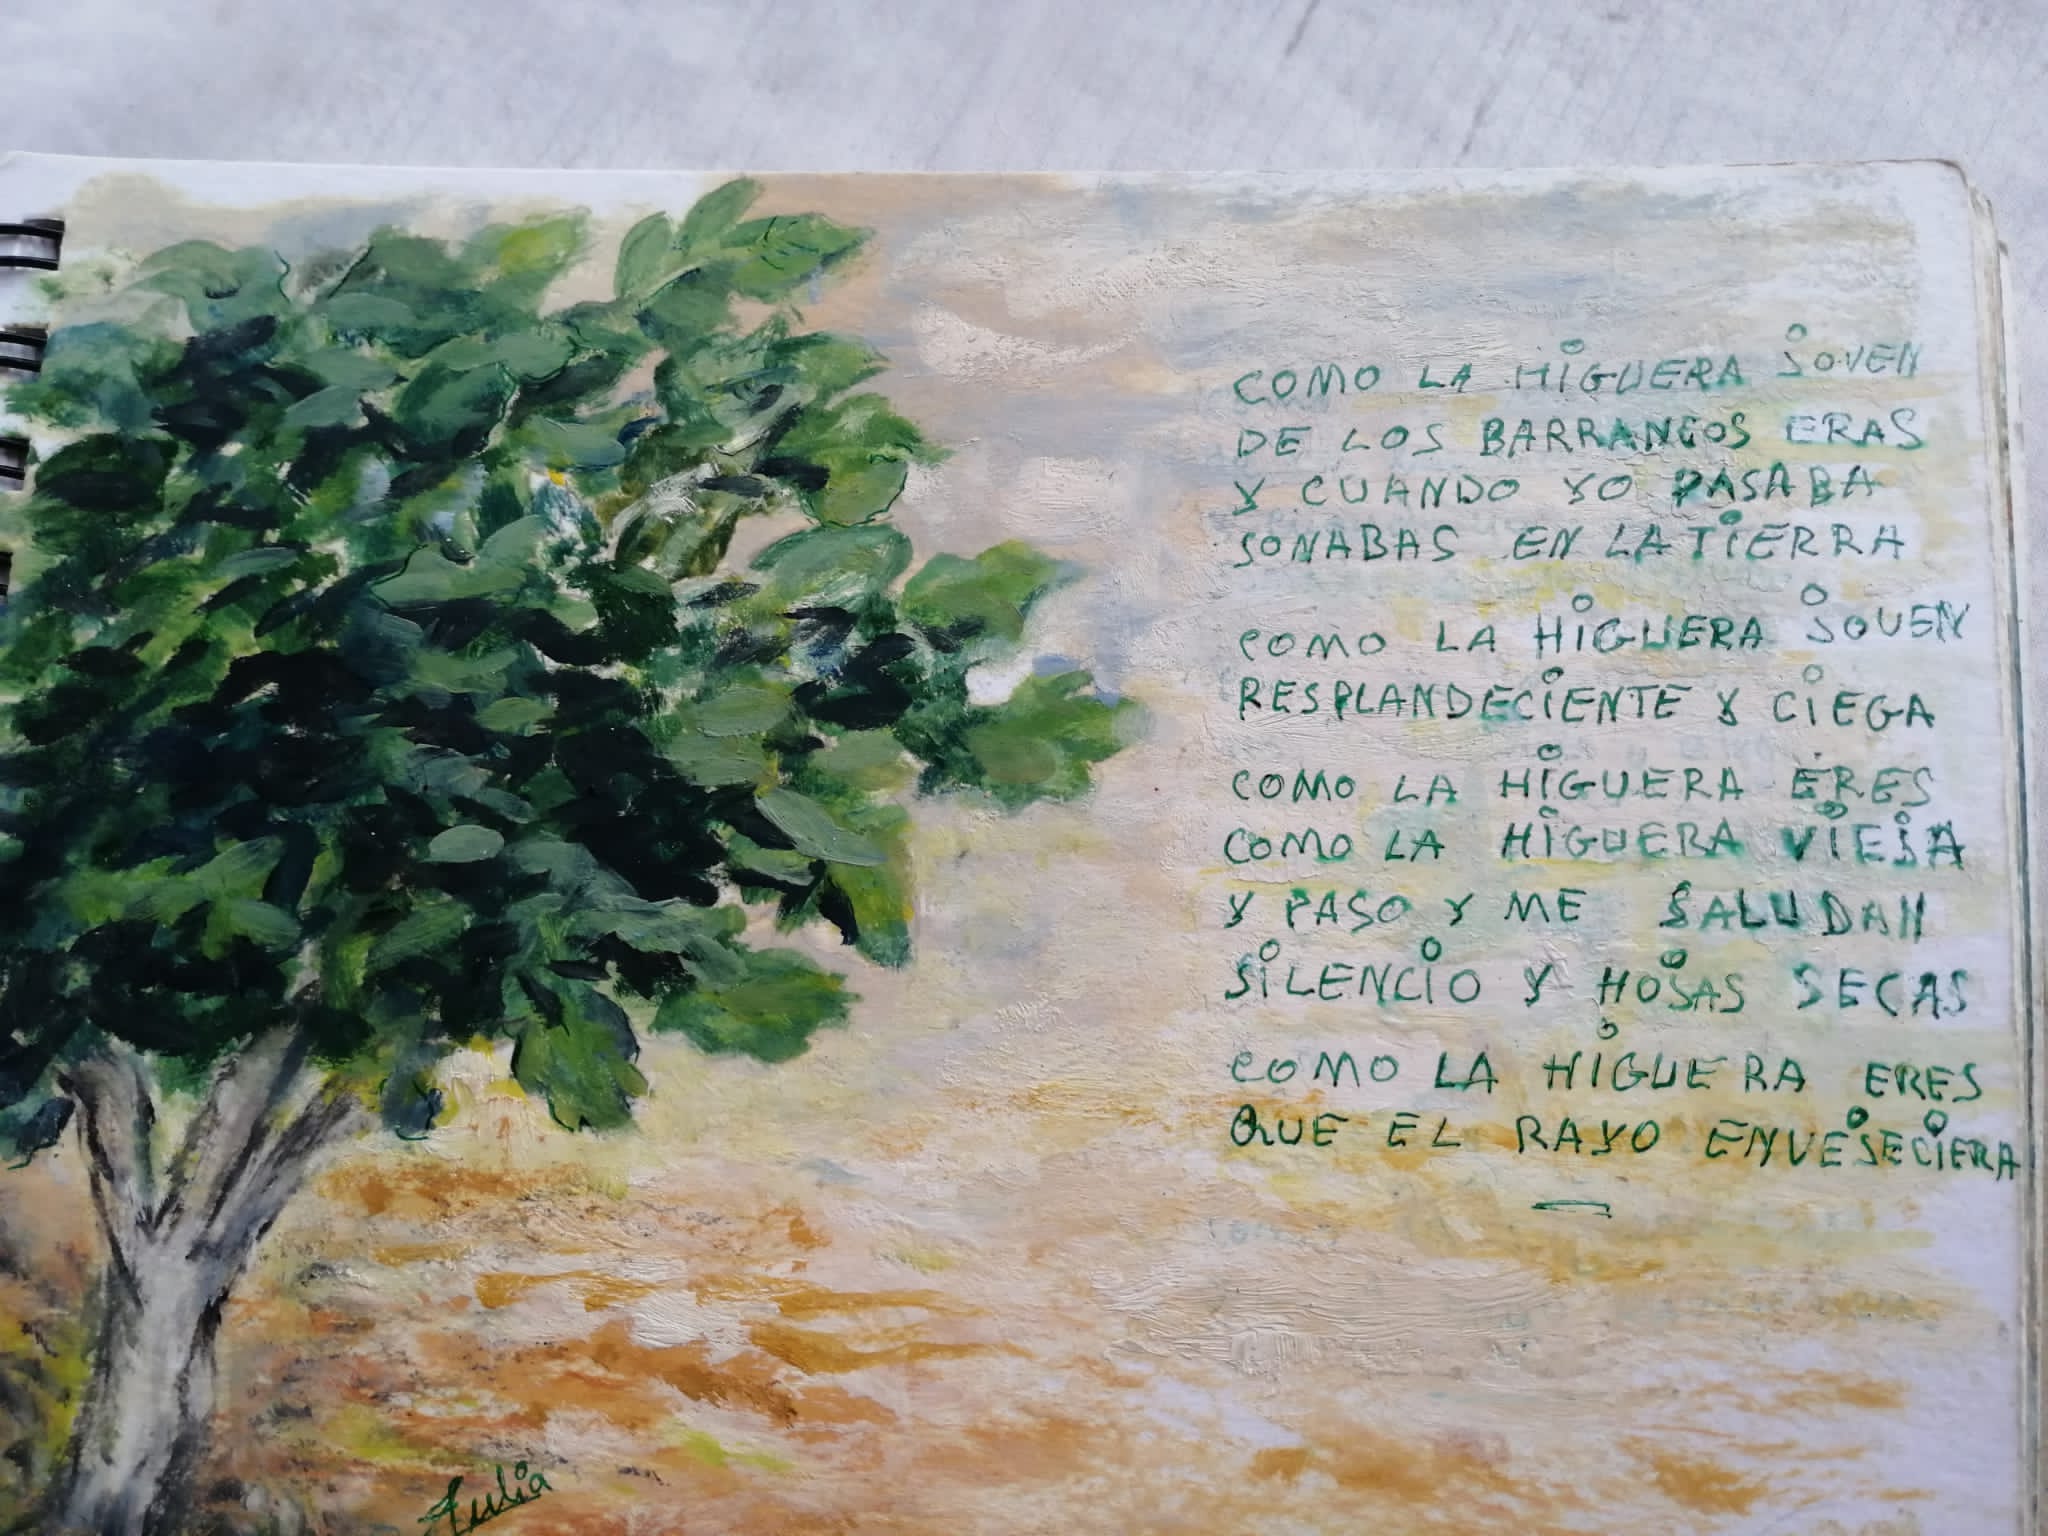 COMO LA HiGUERA JOVEN
DE LOS BARRANCOS ERAS
Y CUANDO YO PASABA
SONABAS EN LA TiERRA
COMO LA HiGUERA JOVEN
RESPLANDECiENTE Y CiEGA
COMO LA HiGUERA ERES
COMO LA HiGUERA ViEJA
Y PASO Y ME SALUDAN
SiLENCiO Y HOJAS SECAS
COMO LA HiGUERA ERES
QUE EL RAYO ENVEJECiERA
Julia